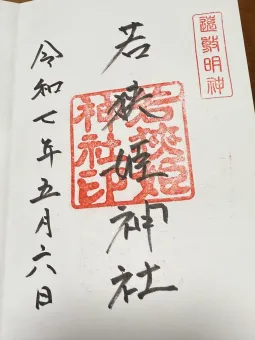 遠敷明神
若狭姫神社
若狭姫神社印
令和七年五月六日